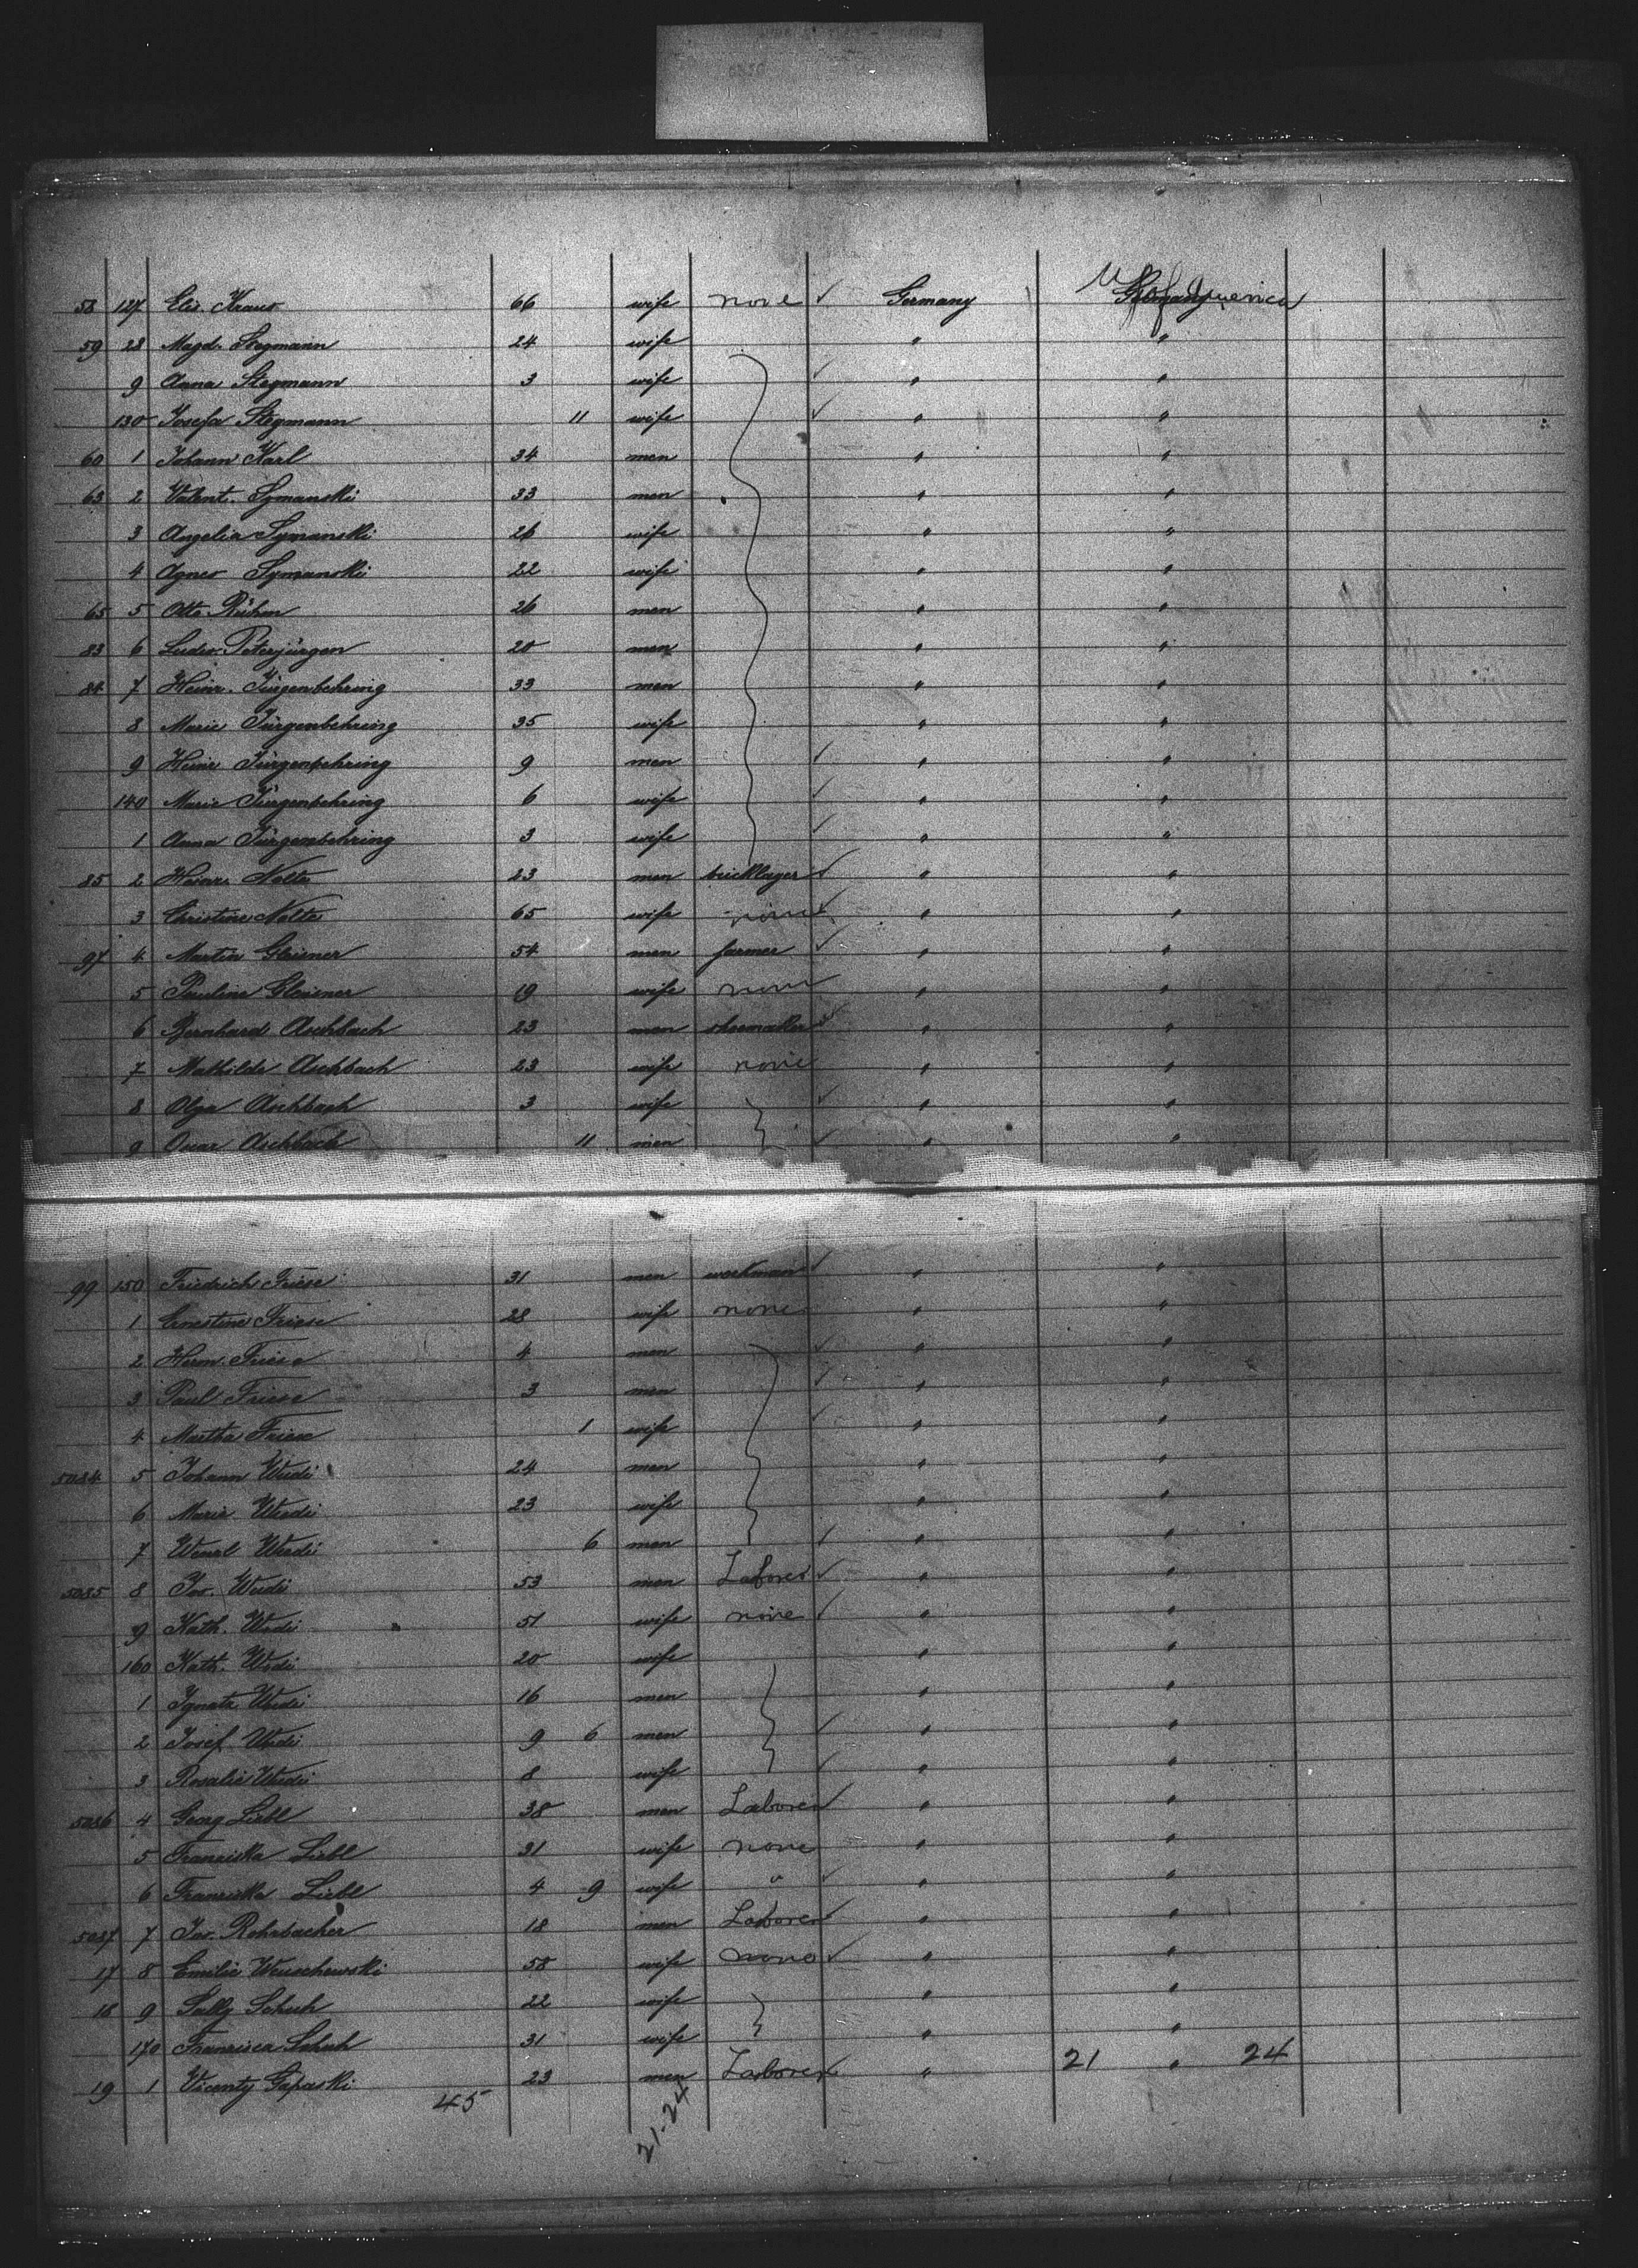 58 127 Elis. Kraus 66 wife none ✓ Germany U S of America
59 28 Magd. Stegmann 24 wife " "
9 Anna Stegmann 3 wife ✓ " "
130 Josefa Stegmann 11 wife ✓ " "
60 1 Johann Karl 34 men " "
63 2 Valent. Symanski 33 men " "
3 Angelia Symanski 26 wife " "
4 Agnes Symanski 22 wife " "
65 5 Otto 26 men " "
83 6 Ludw. Peterjürgen 20 men " "
84 7 Heinr. Jürgenbehring 33 men " "
8 Marie Jürgenbehring 35 wife " "
9 Heinr Jürgenbehring 9 men ✓ " "
140 Marie Jürgenbehring 6 wife ✓ " "
1 Anna Jürgenbehring 3 wife ✓ " "
85 2 Heinr. Nolte 23 men bricklayer ✓ " "
3 Christine Nolte 65 wife none ✓ " "
97 4 Martin 54 men farmer ✓ " "
5 Pauline 19 wife none " "
6 Bernhard Aschbach 23 men shoemaker ✓ " "
7 Mathilde Aschbach 23 wife none " "
8 Olga Aschbach 3 wife ✓ " "
9 Oscar Aschbach 11 men ✓ " "
99 150 Friedrich Friese 31 men workman ✓ " "
1 Ernestine Friese 28 wife none " "
2 Herm. Friese 4 men ✓ " "
3 Paul Friese 3 men ✓ " "
4 Martha Friese 1 wife ✓ " "
5084 5 Johann 24 men " "
6 Marie 23 wife " "
7 Wenzl 6 men ✓ " "
5085 8 Jos. 53 men Laborer ✓ " "
9 Kath. 51 wife none ✓ " "
160 Kath. 20 wife " "
1 Ignatz 16 men " "
2 Josef 9 6 men ✓ " "
3 Rosalie 8 wife ✓ " "
5086 4 Georg Liebl 38 men Laborer ✓ " "
5 Franziska Liebl 31 wife none " "
6 Franziska Liebl 4 9 wife " ✓ " "
5087 7 Jos. Rohrbacher 18 men Laborer ✓ " "
17 8 Emilie Wenschewski 58 wife none ✓ " "
18 9 Sally Schuh 22 wife " "
170 Francisca Schuh 31 wife " "
19 1 Vicenty Gapaski 23 men Laborer " 21 " 24
45
21-24